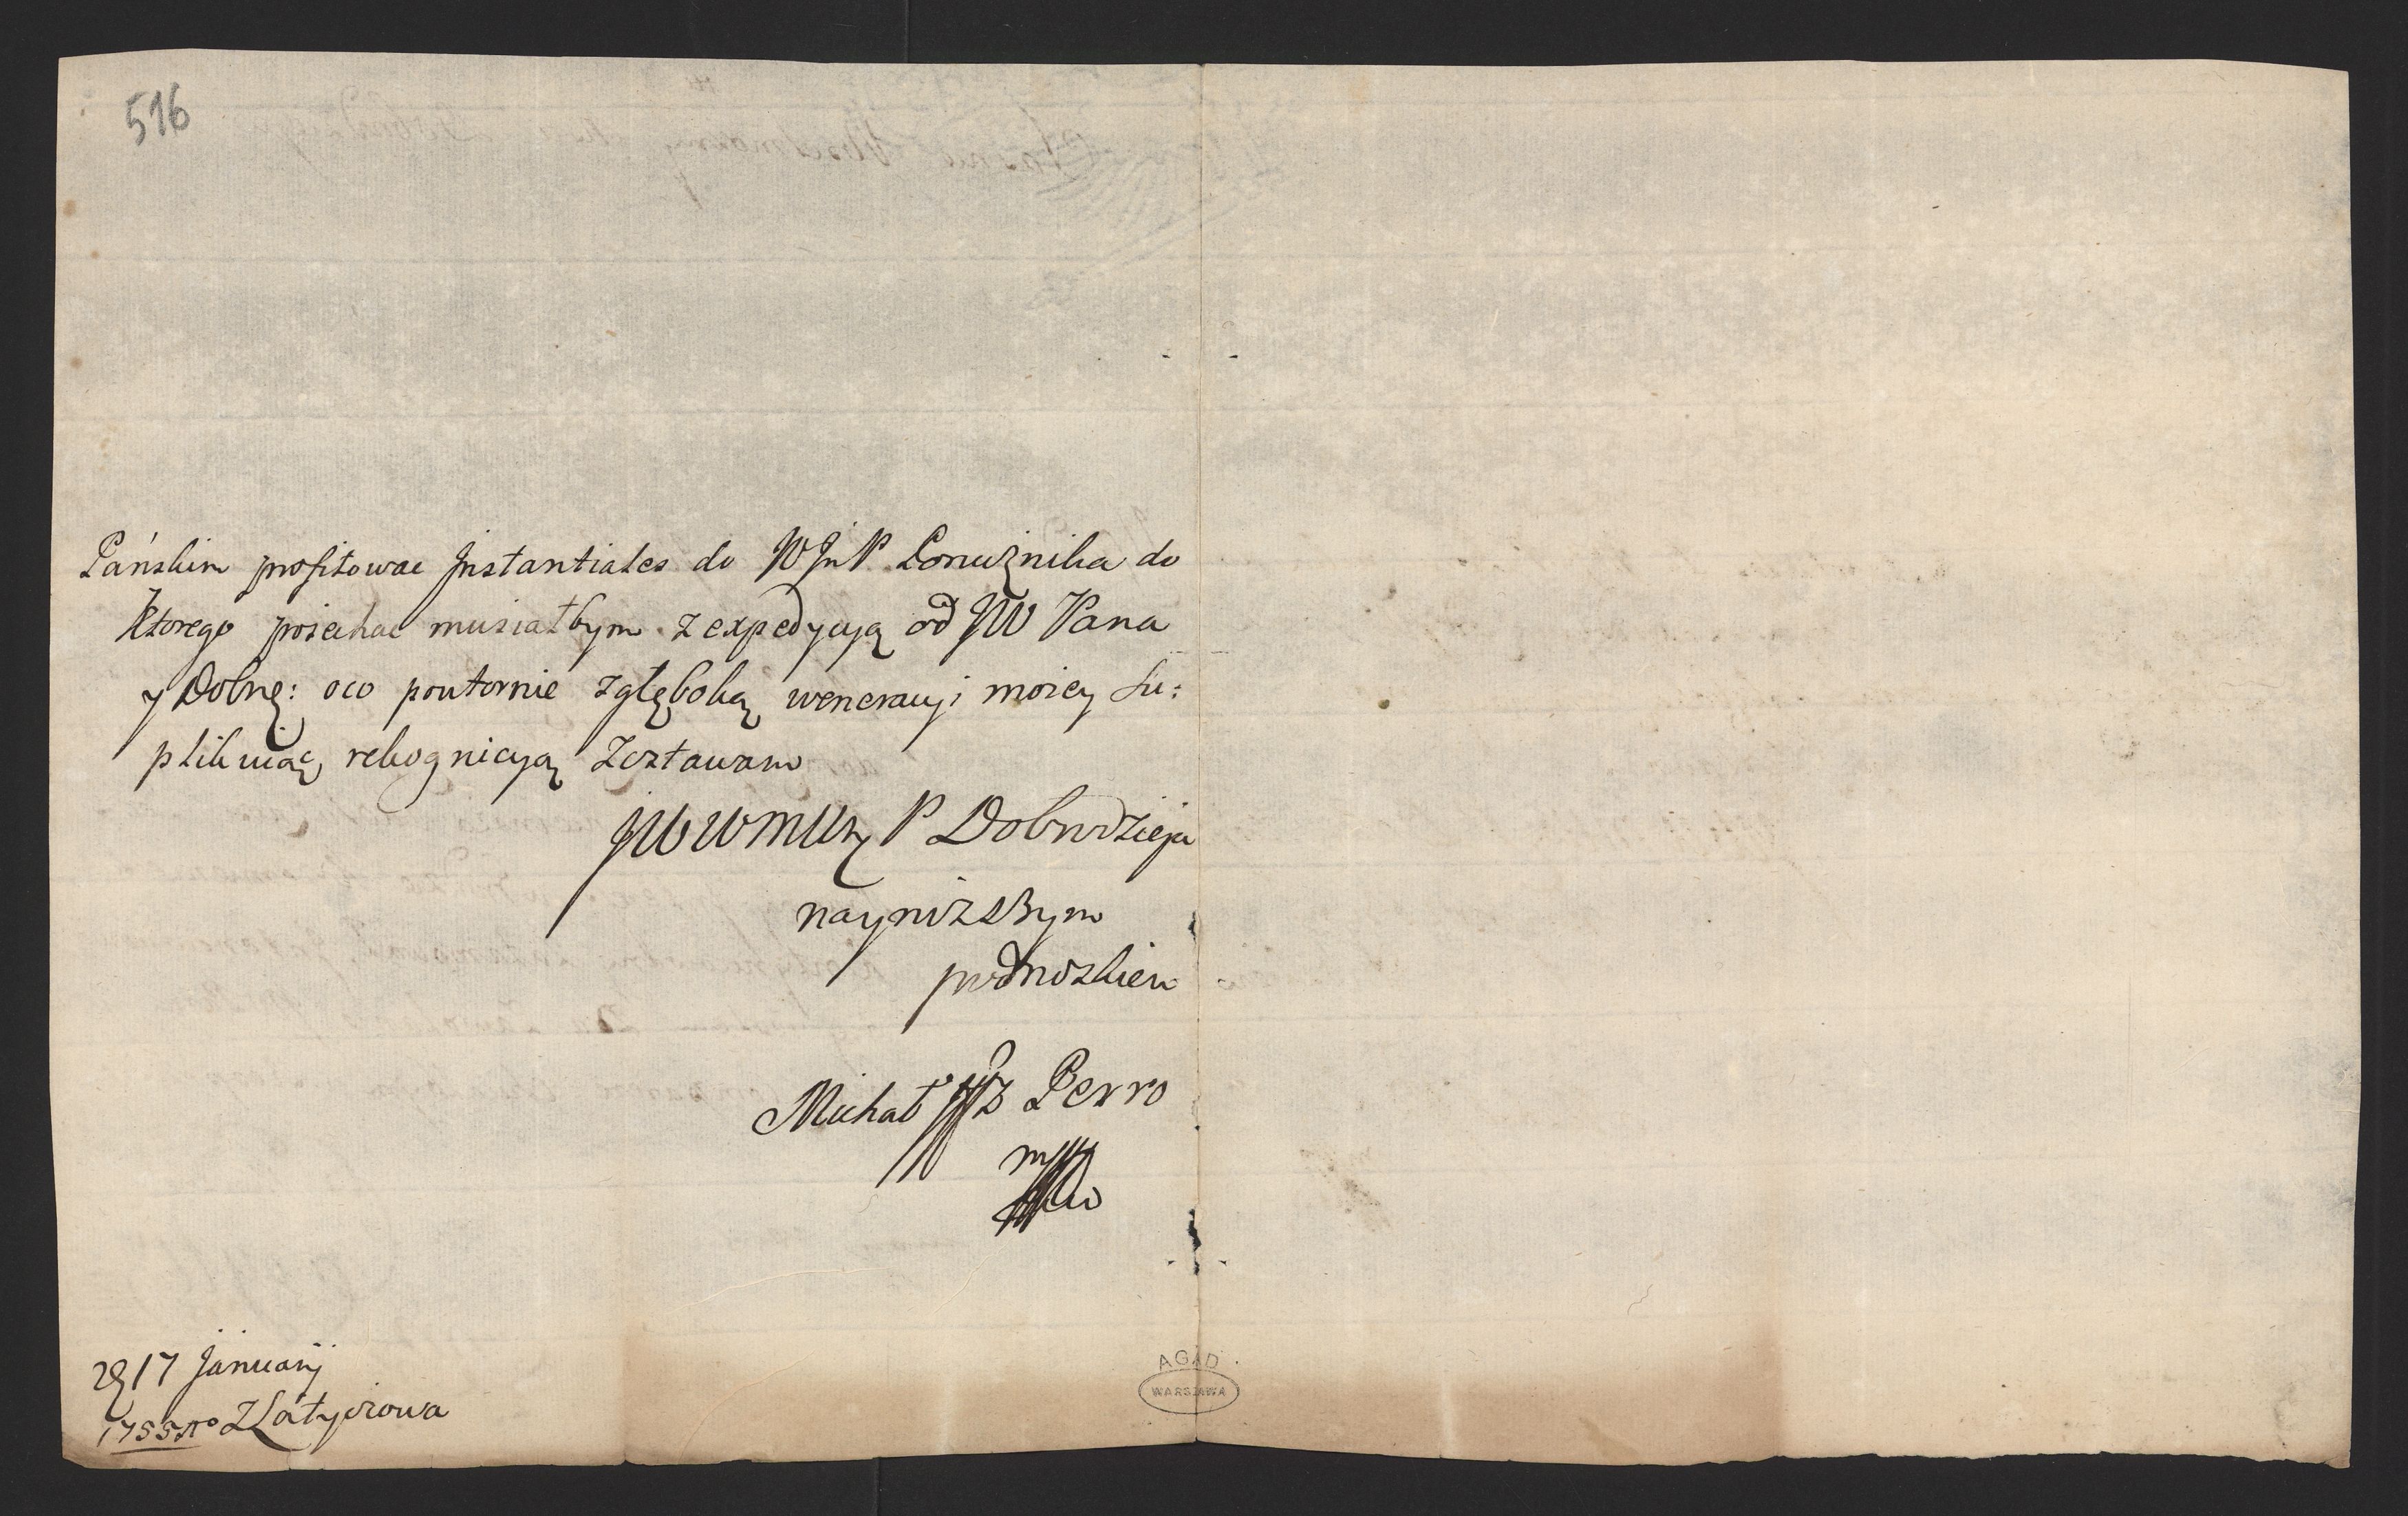 516
Pańskim profitowac Jnstantiales do WJmP. Koniusznika do
ktorego poiechac musiałbym z expedycyją od JW Pana
y Dobrę: oco powtornie zgłęboką weneracyi moiey su:
plikuiąc, rekognicyją zostawam
JWWMM P Dobrodzieja
nayniższym
podnoszkiem
Michał Perro
mp
17 Januarij
1755 Ao ZLatyczowa
AGAD
WARSZAWA